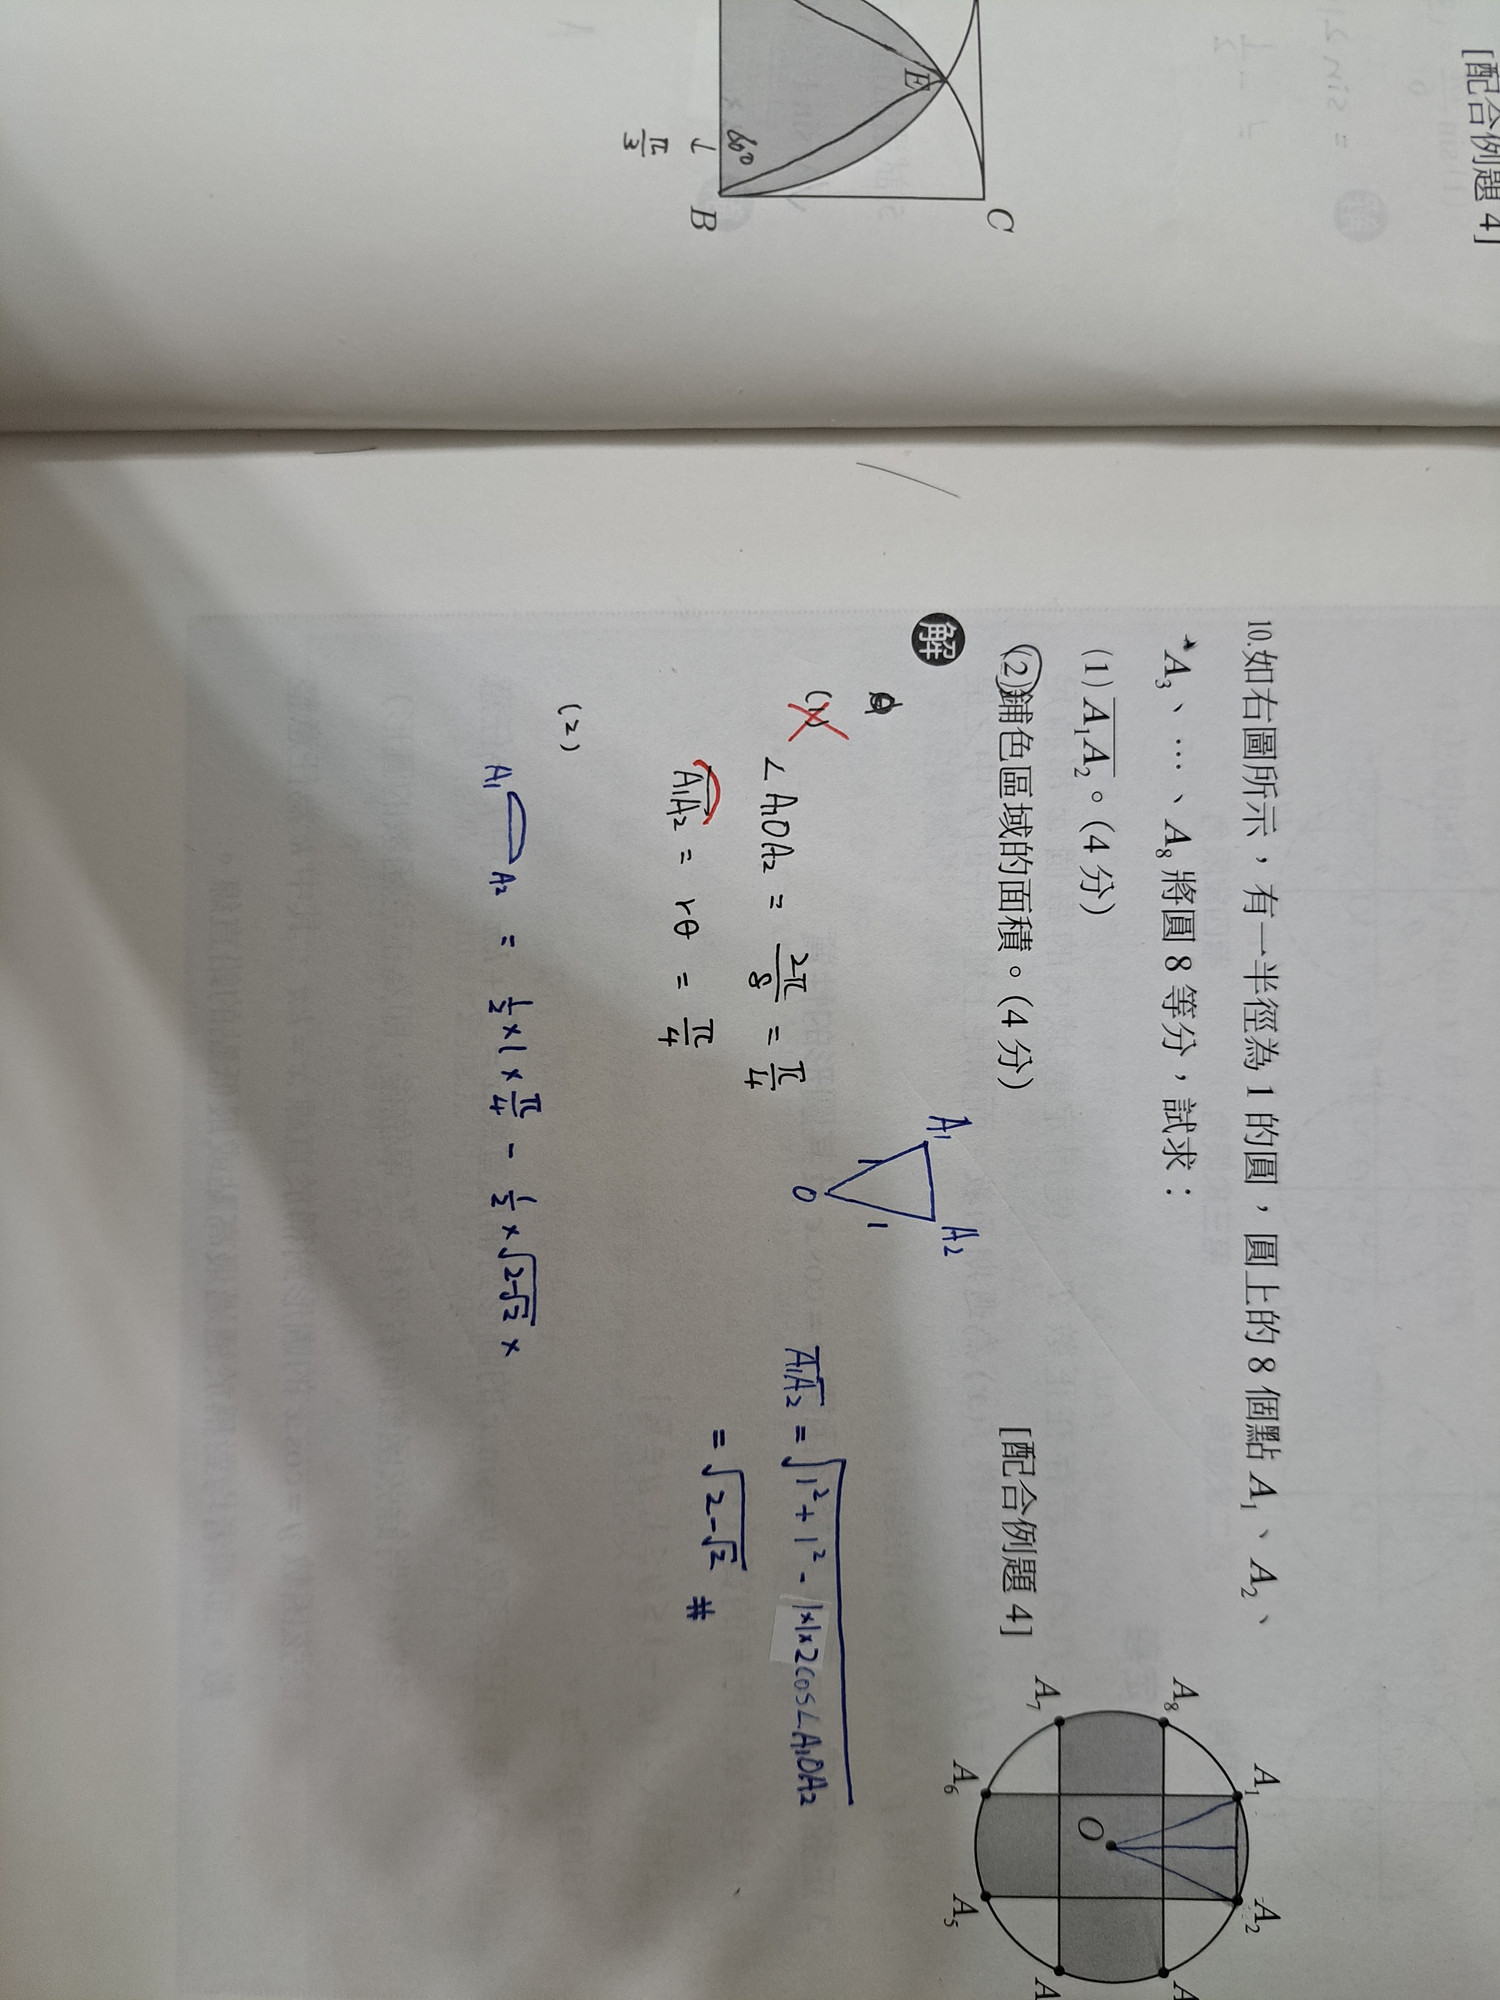 [配合例題 4]
E
60°
1
π/3
B
C
10.如右圖所示，有一半徑為 1 的圓，圓上的 8 個點 A₁、A₂、
A₃、…、A₈ 將圓 8 等分，試求：
(1) A̅₁A̅₂。(4 分)
(2)鋪色區域的面積。(4 分)
[配合例題 4]
A₁
A₂
A₈
A₇
O
A₆
A₅
解
θ
(1)
∠A₁OA₂ = 2π/8 = π/4
A₁A₂ = rθ = π/4
A₁
A₂
1
1
O
A̅₁A̅₂ = √(1² + 1² - 1×1×2cos∠A₁OA₂)
= √(2-√2) #
(2)
A₁ A₂ = 1/2 × 1 × π/4 - 1/2 × √(2-√2) ×